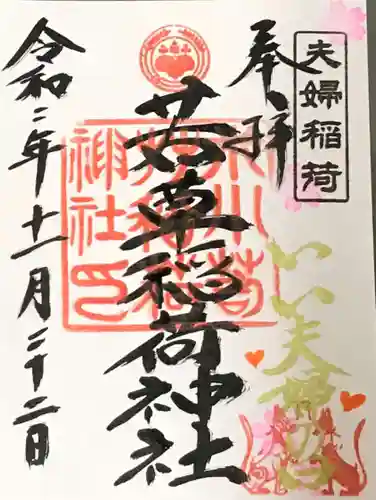 奉拝
夫婦稲荷
稲荷神社
令和二年十一月二十二日
いい夫婦の日
神社印